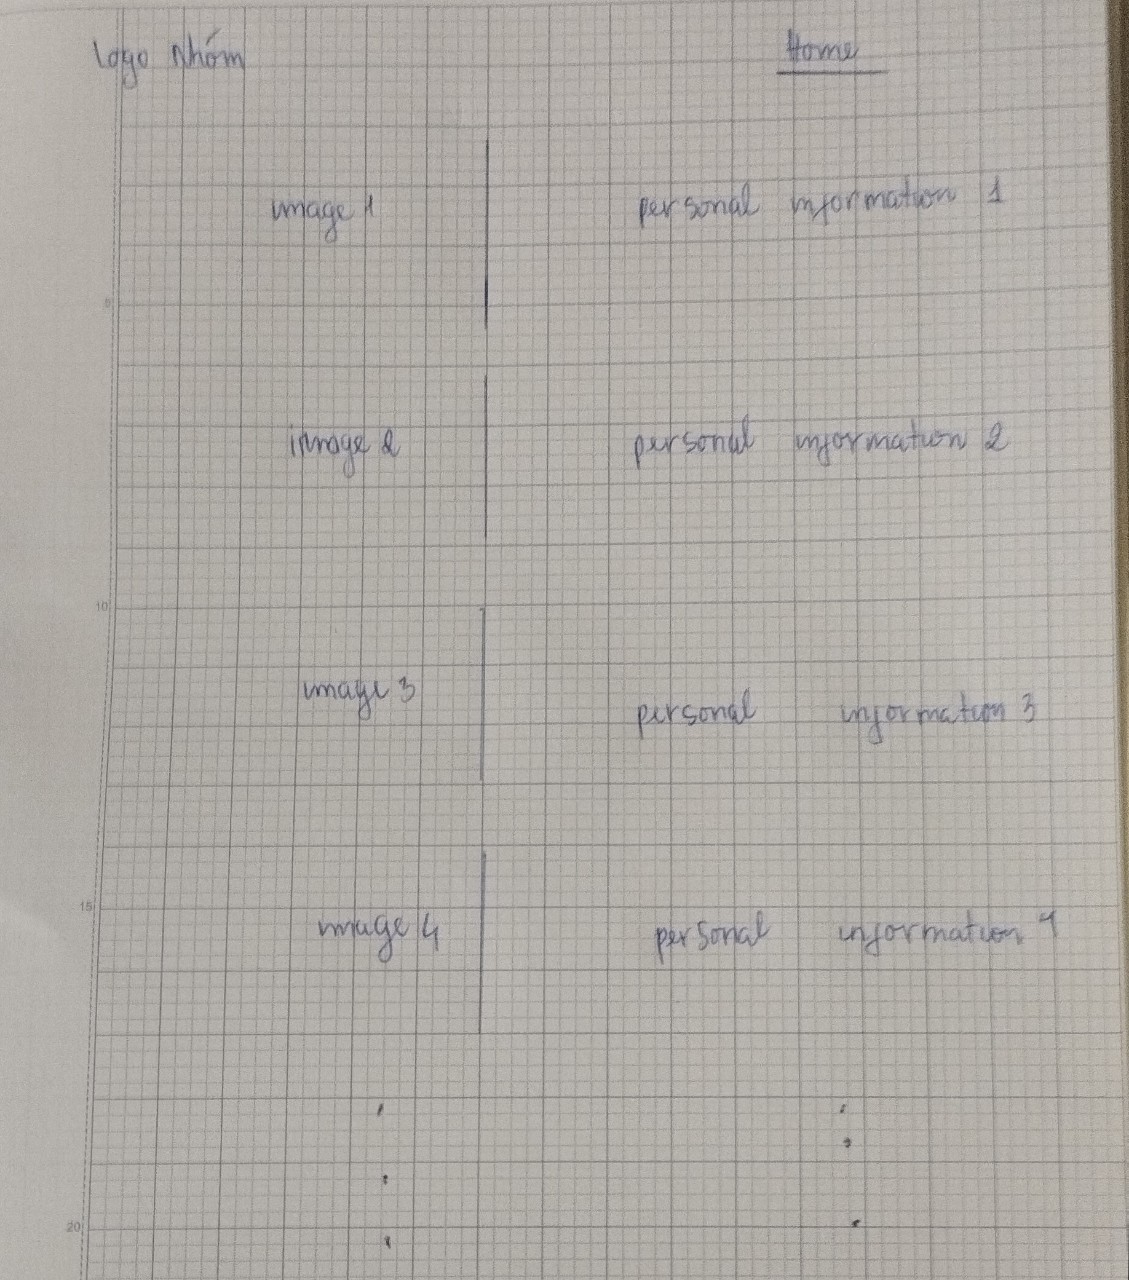 Logo Nhóm Home
image 1 personal information 1
5
image 2 personal information 2
10
image 3 personal information 3
15
image 4 personal information 4
20